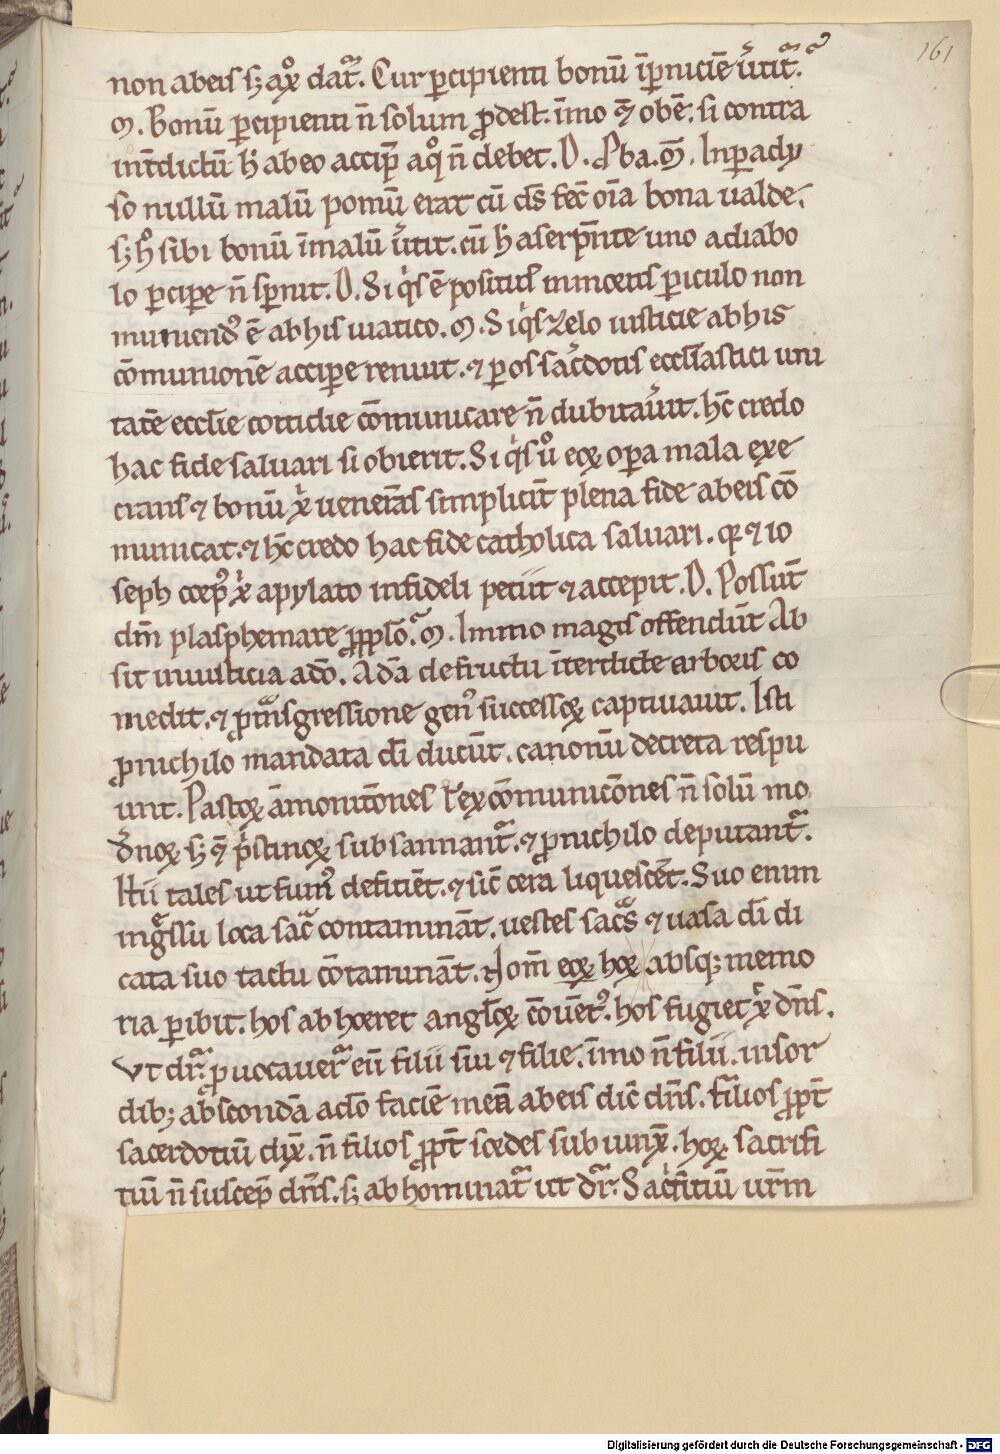 161
non abeis sꝫ a xp̄o dat᷑. Cur ꝑcipienti bonū ī ꝑniciē ũtit᷑.
M. Bonū ꝑcipienti n̄ solum ꝓdest. īmo ⁊ obē. si contra
int̄dictū h̄ abeo accip̄ a qͦ n̄ debet. D. Ꝓba. M. In parady
so nullū malū pomū erat cū ds̄ fec̄ oīa bona ualde.
sꝫ hͦ sibi bonū ī malū ũtit. cū h̄ a serpn̄te uno a diabo
lo ꝑcipe n̄ spernit. D. Si qͥs ē positus in mortis ꝑiculo non
muniendꝰ ē ab his uiatico. M. Si qͥs zelo iusticie ab his
cōmunionē accipe renuit. ⁊ ꝑ os sac̄dotis eccl̄iastici uni
tatē eccl̄ie cottidie cōmunicare n̄ dubitaũit. hc̄ credo
hac fide saluari si obierit. Si qͥs uͦ eoꝝ opera mala exe
crans ⁊ bonū xp̄i uenerās simplicit̄ plena fide ab eis cō
municat. ⁊ hc̄ credo hac fide catholica saluari. qꝛ ⁊ io
seph corpꝰ xp̄i a pylato infideli petiit ⁊ accepit. D. Possunt
dm̄ plasphemare ꝓ pplō. M. Immo magis offendūt Ab
sit iniusticia a dō. Adā de fructu īterdicte arboris co
medit. ⁊ p̄uaͣsgressione genꝰ successoꝝ captiuauit. Isti
ꝓ nichilo mandata dī ducūt. canonū decreta respu
unt. Pastoꝝ āmonitōnes ł excōmunicōnes n̄ solū mo
dñoꝝ sꝫ ⁊ p̄stinoꝝ subsannant᷑. ⁊ ꝓ nichilo deputant᷑.
Iti tales ut fumꝰ deficient. ⁊ sic̄ cera liquescent. Suo enim
ingͣssu loca sac̄ contamināt. uestes sacͣs ⁊ uasa dī di
cata suo tactu cōtaminant. Nom̄ eoꝝ hoꝝ absqꝫ memo
ria ꝑibit. hos ab horret angl̄oꝝ cōuentꝰ. hos fugiet xp̄c dn̄s.
Ut dr᷑. ꝓuocauer̄ eū filii sui ⁊ filie. īmo n̄ filii. in sor
dibꝫ abscondā a dō faciē meā ab eis dic̄ dn̄s. filios ꝓpt̄
sacerdotiū dix̄. n̄ filios ꝓpt̄ sordes sub iunx̄. hoꝝ sacrifi
tiū n̄ suscep̄ dn̄s. sꝫ ab hominat᷑ ut dr᷑. Sac̄fitiū ur̄m
Digitalisierung gefördert durch die Deutsche Forschungsgemeinschaft - DFG